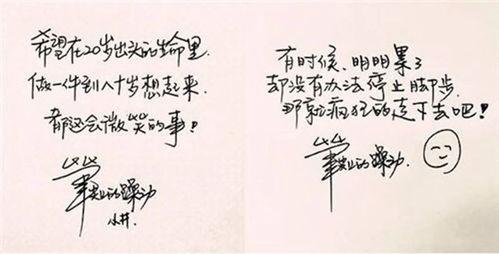 希望在20岁出头的生命里.
做一件到八十岁想起来.
都还会微笑的事!
毕业的躁动
小井.
有时候、明明累了
却没有办法停止脚步.
那就疯狂的走下去吧!
毕业的躁动.